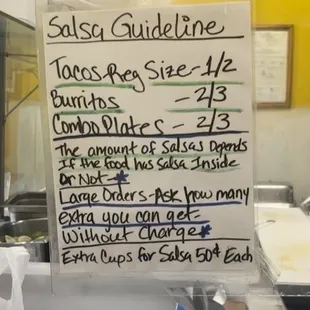 Salsa Guideline
Tacos Reg Size - 1/2
Burritos - 2/3
Combo Plates - 2/3
The amount of Salsas Depends
If the food has Salsa Inside
Or Not - *
Large Orders - Ask how many
extra you can get -
Without Charge *
Extra Cups for Salsa 50¢ Each